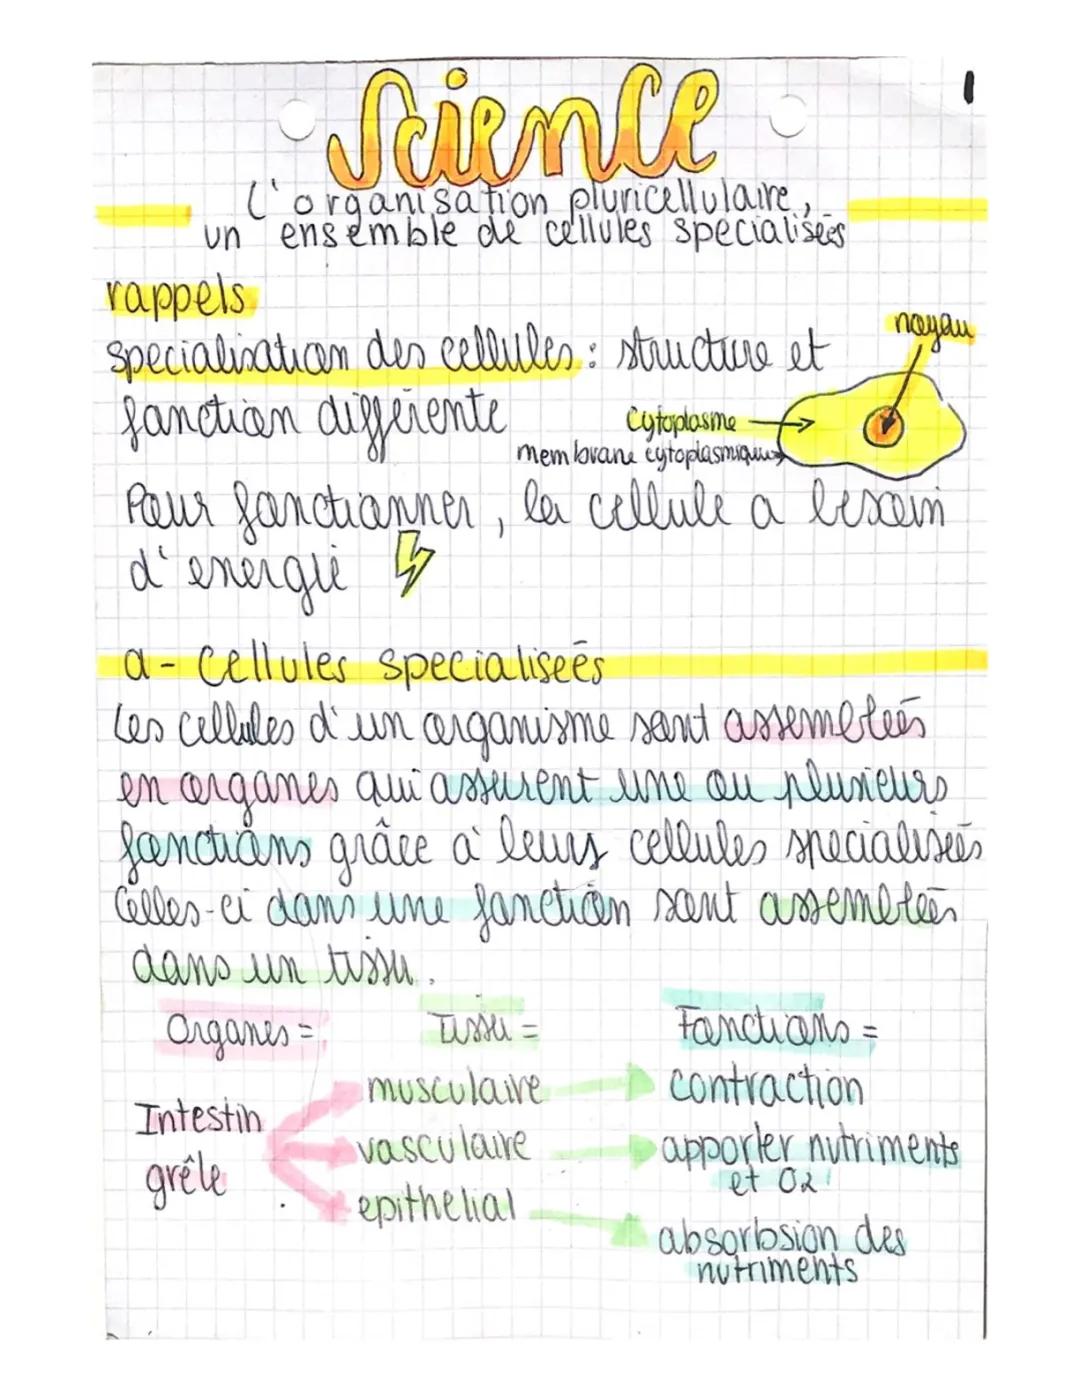 1
Science
L'organisation pluricellulaire,
un ensemble de cellules specialisées
rappels
specialisation des cellules : structure et
noyau
fonction différente
Cytoplasme
membrane cytoplasmique
Pour fonctionner, la cellule a besoin
d'energie
a - Cellules specialiseés
Les cellules d'un organisme sont assembleés
en organes qui assurent une ou plusieurs
fonctions grâce à leurs cellules specialiseés
Celles-ci dans une fonction sont assembleés
dans un tissu.
Organes = Tissu = Fonctions =
musculaire contraction
Intestin
grêle
vasculaire apporter nutriments
et O2
epithelial
absorbsion des
nutriments